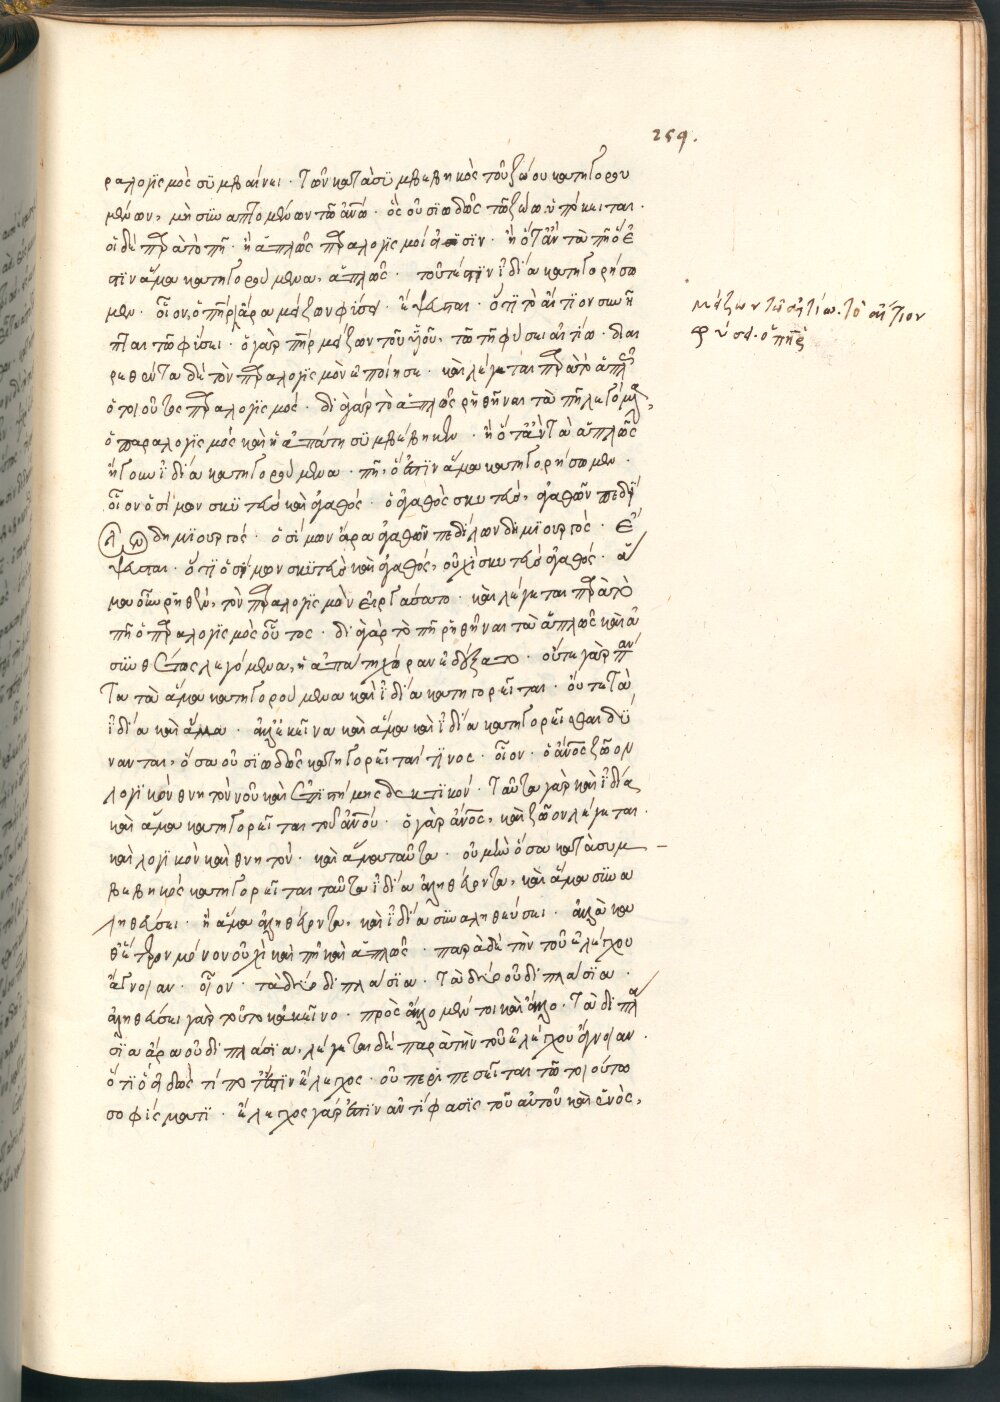 259.
ραλογισμὸς συμβαίνει · τῶν κατὰ συμβεβηκὸς τοῦ ζώου κατηγορου
μένων, μὴ συναπτομένων τῶ ἀνω · ὃς οὐσιωδῶς τῶ ζώω ὑπόκειται ·
οἱ δὲ παρὰ τὸ πῆ · ἢ ἁπλῶς παραλογισμοί εἰσιν · ἢ ὅταν τὰ πῆ ὅ ἐ
στιν ἅμα κατηγορούμενα, ἁπλῶς · τουτέστιν ἰδία κατηγορήσω
μεν · οἷον, ὁ πατὴρ ἄρα μείζων φύσει · ἕψεται · ὅτι τὸ αἴτιον συνῆ
πται τῶ φύσει · ὁ γὰρ πατὴρ μείζων τοῦ υἱοῦ, τῶ τῆ φύσει αἰτίω · διαι
ρεθέντα δὲ τὸν παραλογισμὸν ἐποίησε · καὶ λέγεται παρὰ τὸ ἁπλῶς
ὁ τοιοῦτος παραλογισμός · διὰ γὰρ τὸ ἁπλῶς ῥηθῆναι τὰ πῆ λεγόμενα,
ὁ παραλογισμὸς καὶ ἡ ἀπάτη συμβέβηκεν · ἢ ὅταν τὰ ἁπλῶς
ἤγουν ἰδία κατηγορούμενα · πῆ, ὅ ἐστιν ἅμα κατηγορήσωμεν ·
οἷον ὁ σίμων σκυτεὺς καὶ ἀγαθός · ὁ ἀγαθὸς σκυτεύς, ἀγαθῶν πεδί
λων δημιουργός · ὁ σίμων ἄρα ἀγαθῶν πεδίλων δημιουργός · ἕ
ψεται · ὅτι ὁ σίμων σκυτεὺς καὶ ἀγαθός, οὐχὶ σκυτεὺς ἀγαθός · ἅ
μα οὖν ῥηθὲν, τὸν παραλογισμὸν εἰργάσατο · καὶ λέγεται παρὰ τὸ
πῆ ὁ παραλογισμὸς οὗτος · διὰ γὰρ τὸ πῆ ῥηθῆναι τὰ ἁπλῶς καὶ ἀ
συνθέτως λεγόμενα, ἡ ἀπάτη χώραν ἐδέξατο · οὔτε γὰρ πάν
τα τὰ ἅμα κατηγορούμενα καὶ ἰδία κατηγορεῖται · οὔτε τὰ
ἰδία καὶ ἅμα · ἀλλ' ἐκεῖνα καὶ ἅμα καὶ ἰδία κατηγορεῖσθαι δύ
νανται, ὅσα οὐσιωδῶς κατηγορεῖται τινός · οἷον · ὁ ἀνος ζῶον
λογικὸν θνητὸν νοῦ καὶ ἐπιστήμης δεκτικόν · ταῦτα γὰρ καὶ ἰδία
καὶ ἅμα κατηγορεῖται τοῦ ἀνου · ὁ γὰρ ἀνος, καὶ ζῶον λέγεται ·
καὶ λογικὸν καὶ θνητόν · καὶ ἅμα ταῦτα · οὐ μὴν ὅσα κατὰ συμ
βεβηκός κατηγορεῖται ταῦτα ἰδία ἀληθεύοντα, καὶ ἅμα συνα
ληθεύσει · ἢ ἅμα ἀληθεύοντα, καὶ ἰδία συναληθεύσει · ἀλλὰ κα
θ' ἕτερον μόνον οὐχὶ καὶ πῆ καὶ ἁπλῶς · παρὰ δὲ τὴν τοῦ ἐλέγχου
ἄγνοιαν · οἷον · τὰ δύο διπλάσια · τὰ δύο οὐ διπλάσια ·
ἀληθεύσει γὰρ τοῦτο κἀκεῖνο · πρὸς ἄλλο μέντοι καὶ ἄλλο · τὰ διπλά
σια ἄρα οὐ διπλάσια, λέγεται δὲ παρὰ τὴν τοῦ ἐλέγχου ἄγνοιαν ·
ὅτι ὁ εἰδὼς τί ποτέ ἐστιν ἔλεγχος · οὐ περιπεσεῖται τῶ τοιούτω
σοφίσματι · ἔλεγχος γὰρ ἐστιν ἀντίφασις τοῦ αὐτοῦ καὶ ἑνὸς,
μείζων τῶ αἰτίω. τὸ αἴτιον
φύσει. ὁ πηρ